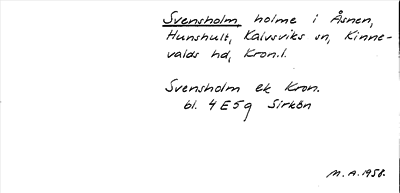 Svensholm, holme i Åsnen,
Hunshult, Kalvsviks sn, Kinne-
valds hd, Kron.l.
Svensholm ek Kron.
bl. 4E5g Sirkön
M.A. 1958.